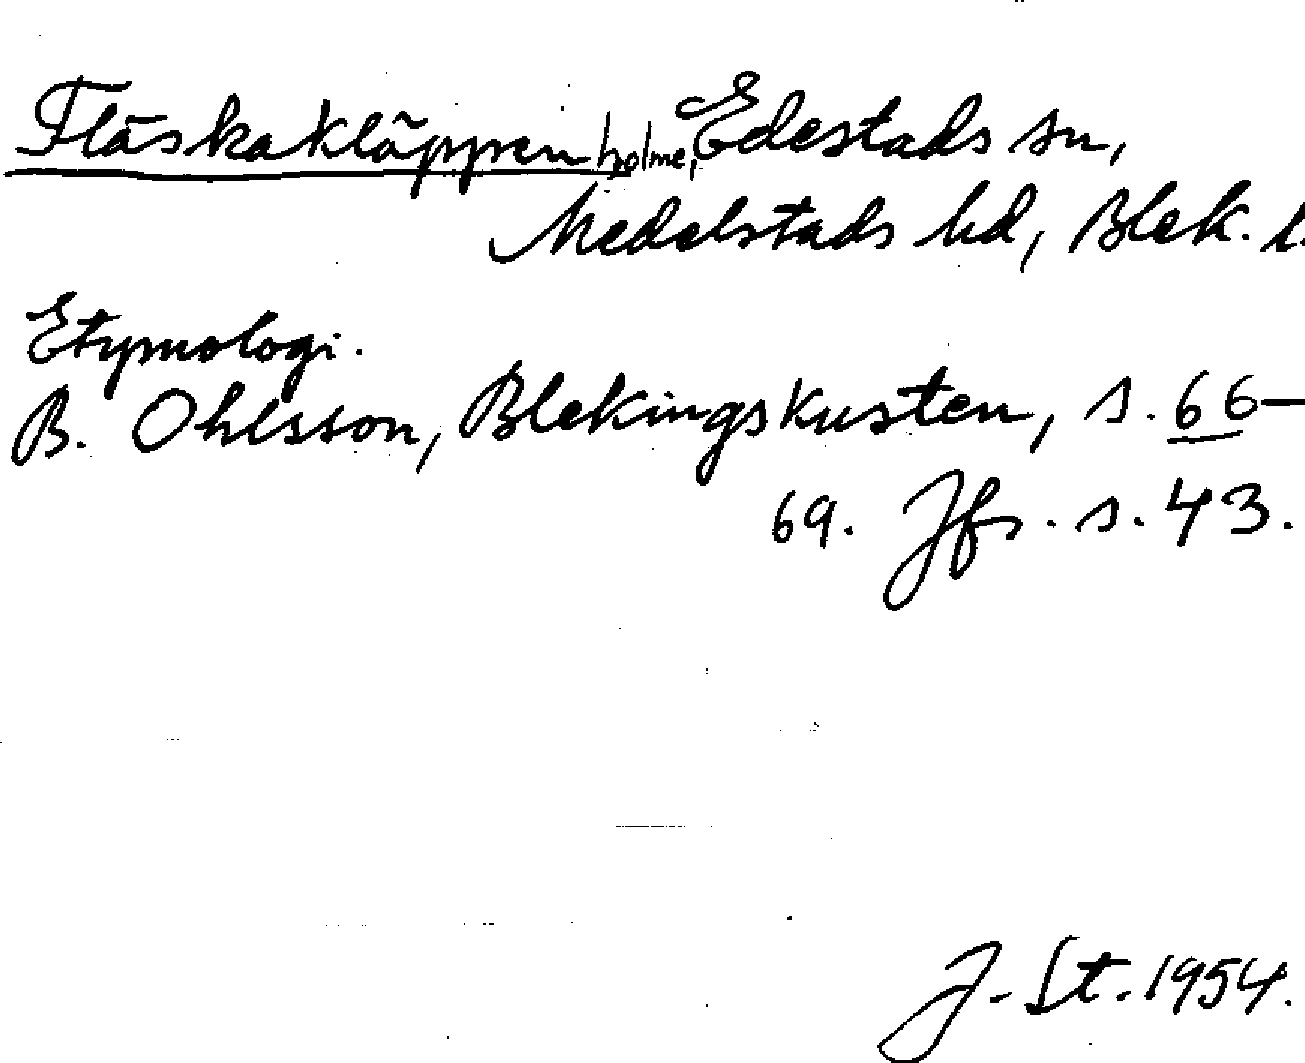 Fläskakläppen holme, Edestads sn,
Medelstads hd, Blek. l.
Etymologi.
B. Ohlsson, Blekingskusten, s. 66–
69. Jfr. s. 43.
J. St. 1954.